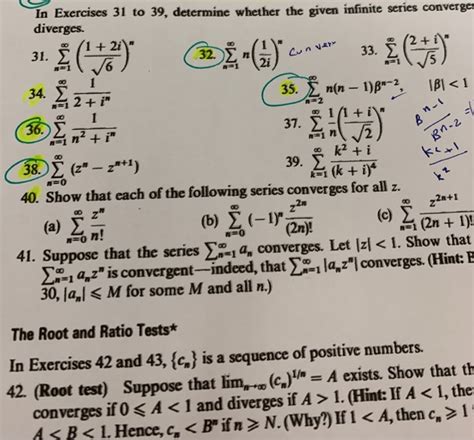 In Exercises 31 to 39, determine whether the given infinite series converge
diverges.
31. ∞ Σ n=1 ((1 + 2i)/√6)^n 32. ∞ Σ n=1 n(1/2i)^n 33. ∞ Σ n=1 ((2 + i)/√5)^n
34. ∞ Σ n=1 1/(2 + i^n) 35. ∞ Σ n=2 n(n − 1)β^(n−2), |β| < 1
36. ∞ Σ n=1 1/(n² + i^n) 37. ∞ Σ n=1 1/n ((1 + i)/√2)^n
β^n-1
β^n-2
38. ∞ Σ n=0 (z^n − z^(n+1)) 39. ∞ Σ k=1 (k² + i)/(k + i)⁴
k²
40. Show that each of the following series converges for all z.
(a) ∞ Σ n=0 z^n/n! (b) ∞ Σ n=0 (−1)^n z^(2n)/(2n)! (c) ∞ Σ n=1 z^(2n+1)/(2n + 1)!
41. Suppose that the series Σ^∞_(n=1) a_n converges. Let |z| < 1. Show that
Σ^∞_(n=1) a_n z^n is convergent—indeed, that Σ^∞_(n=1) |a_n z^n| converges. (Hint: E
30, |a_n| ⩽ M for some M and all n.)
The Root and Ratio Tests*
In Exercises 42 and 43, {c_n} is a sequence of positive numbers.
42. (Root test) Suppose that lim_(n→∞) (c_n)^(1/n) = A exists. Show that th
converges if 0 ⩽ A < 1 and diverges if A > 1. (Hint: If A < 1, the
A < B < 1. Hence, c_n < B^n if n ⩾ N. (Why?) If 1 < A, then c_n ⩾ 1